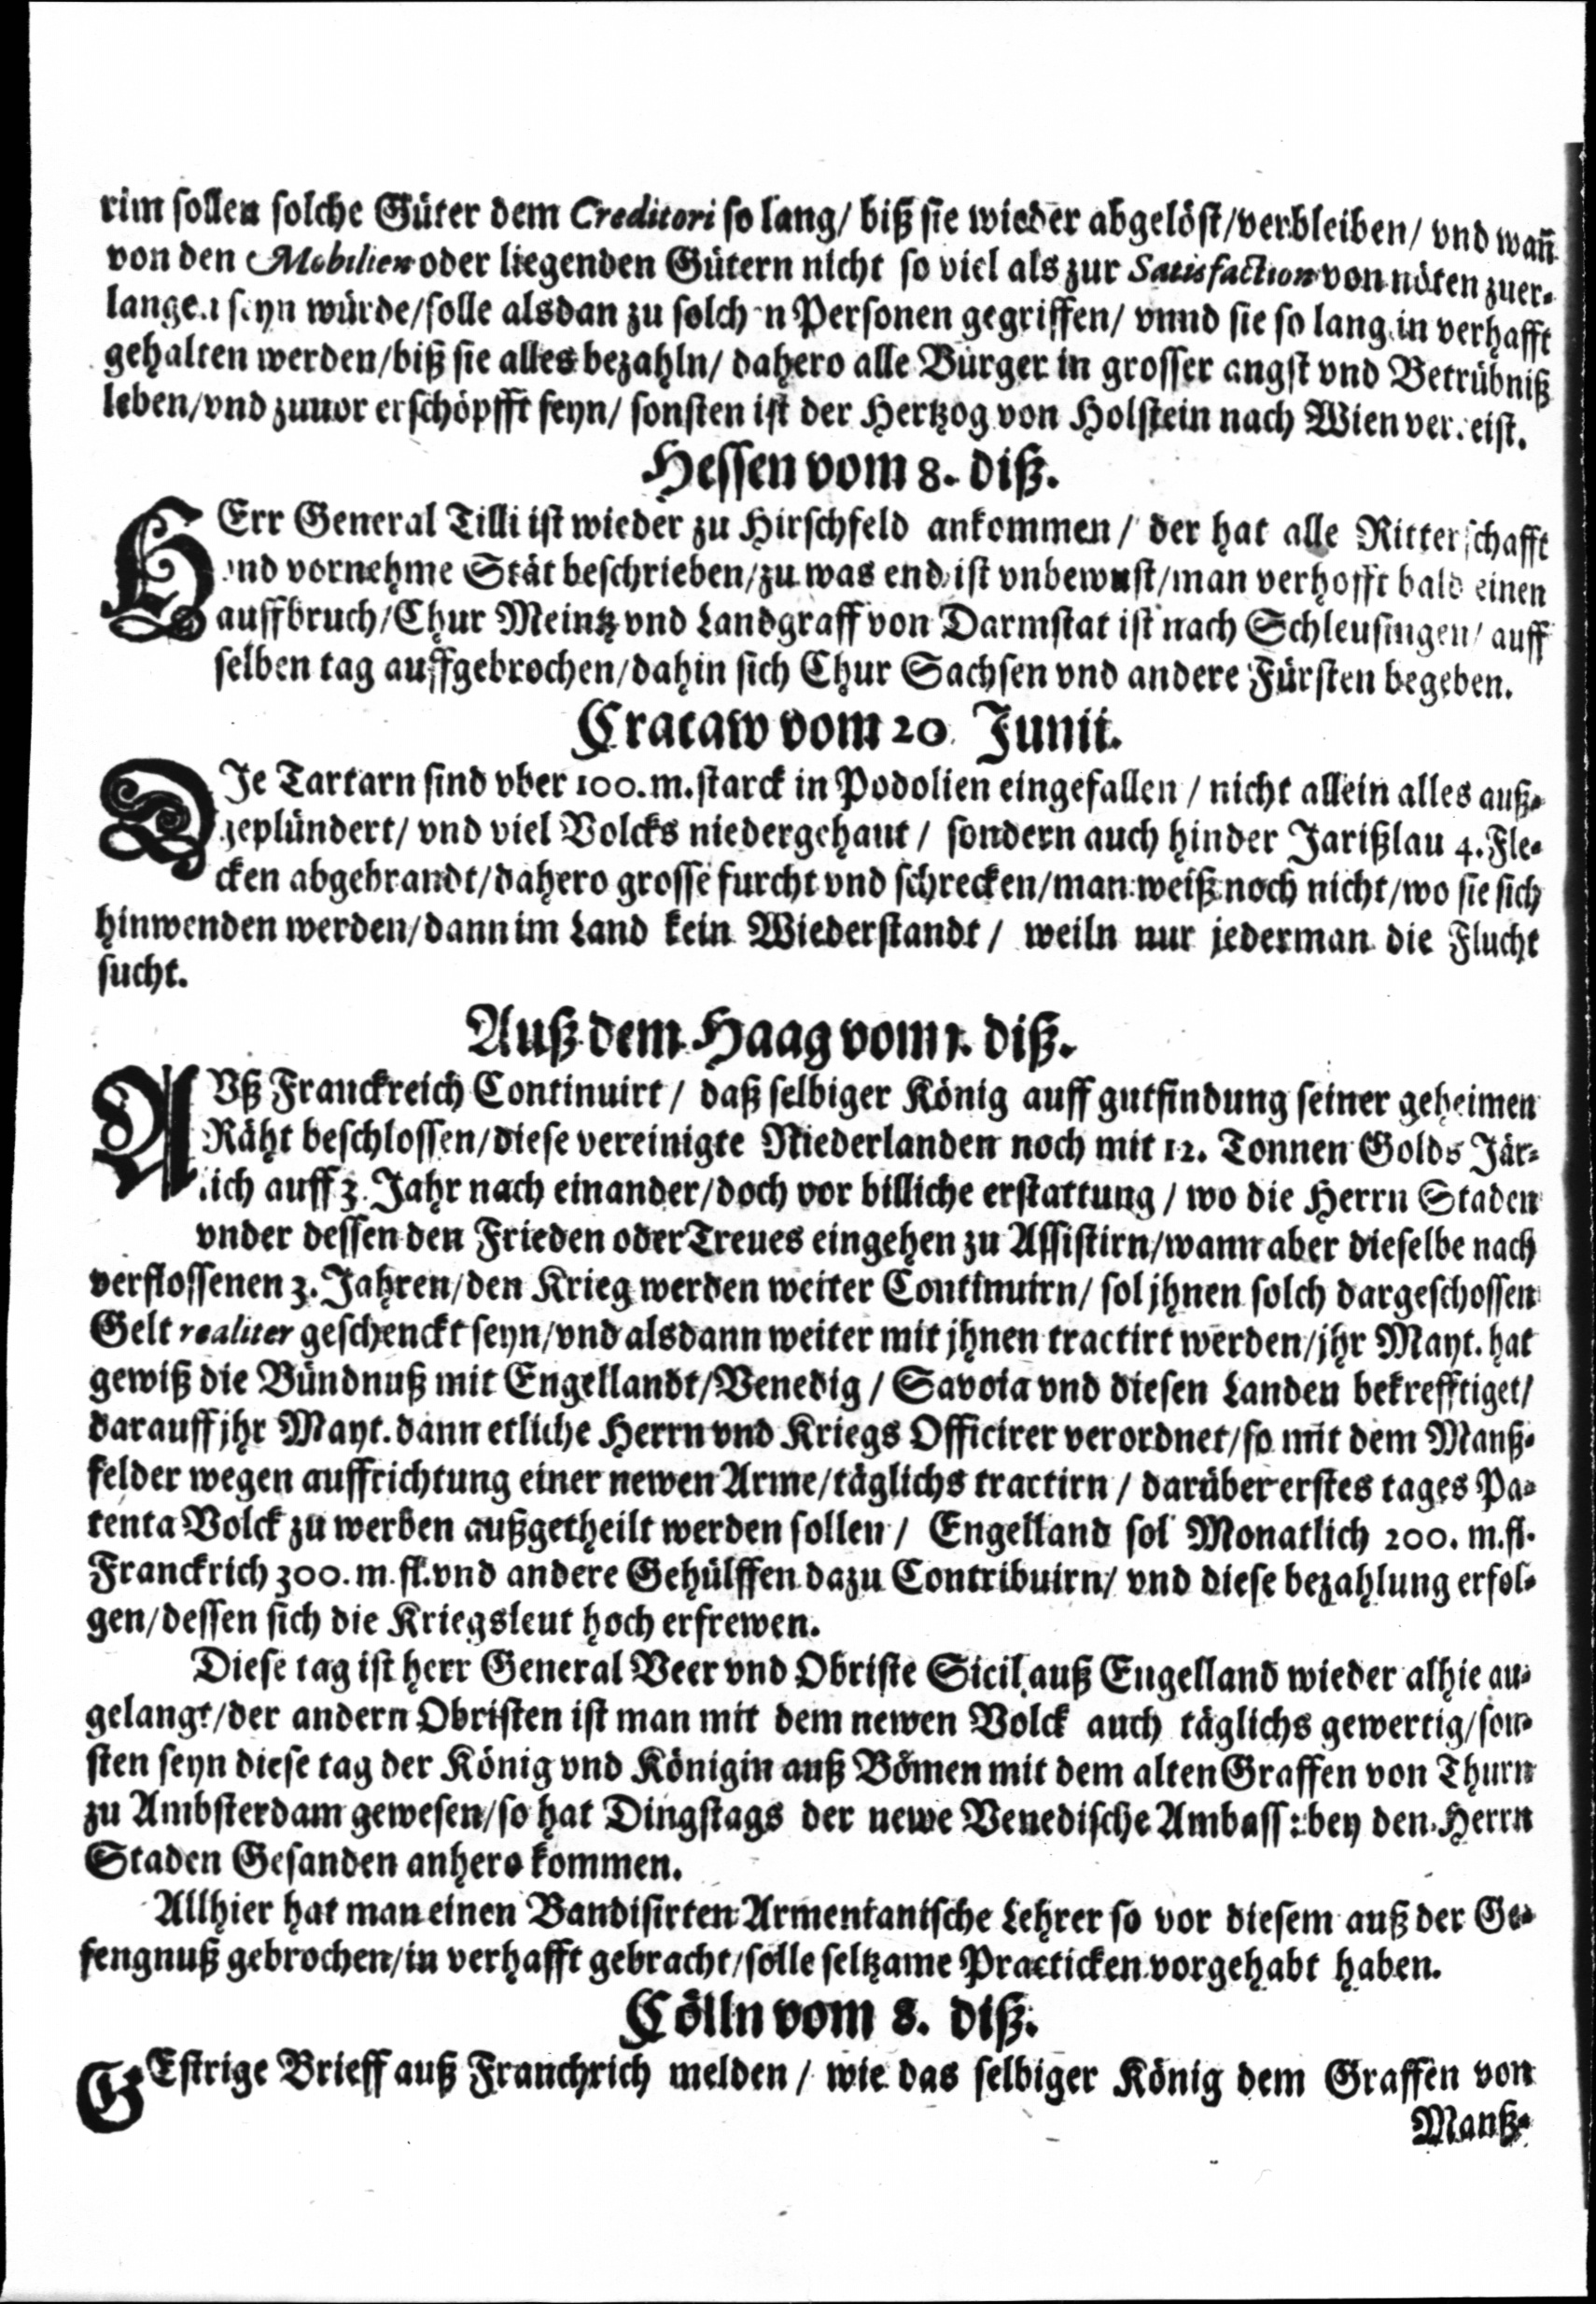 rim sollen solche Güter dem Creditori so lang/ biß sie wieder abgelöst/verbleiben/ vnd wañ
von den Mobilien oder liegenden Gütern nicht so viel als zur Satisfaction von nöten zuer-
langen seyn würde/solle alsdan zu solchen Personen gegriffen/ vnnd sie so lang in verhafft
gehalten werden/biß sie alles bezahln/ dahero alle Bürger in grosser angst vnd Betrübniß
leben/vnd zuuor erschöpfft seyn/ sonsten ist der Hertzog von Holstein nach Wien verreist.
Hessen vom 8. diß.
HErr General Tilli ist wieder zu Hirschfeld ankommen/ der hat alle Ritterschafft
vnd vornehme Stät beschrieben/zu was end ist vnbewust/man verhofft bald einen
auffbruch/Chur Meintz vnd Landgraff von Darmstat ist nach Schleusingen/ auff
selben tag auffgebrochen/dahin sich Chur Sachsen vnd andere Fürsten begeben.
Cracaw vom 20. Junii.
DJe Tartarn sind vber 100. m. starck in Podolien eingefallen / nicht allein alles auß-
geplündert/ vnd viel Volcks niedergehaut / sondern auch hinder Jarißlau 4. Fle-
cken abgebrandt/dahero grosse furcht vnd schrecken/man weiß noch nicht/wo sie sich
hinwenden werden/dann im Land kein Wiederstandt / weiln nur jederman die Flucht
sucht.
Auß dem Haag vom 1. diß.
AVß Franckreich Continuirt / daß selbiger König auff gutfindung seiner geheimen
Räht beschlossen/diese vereinigte Niederlanden noch mit 12. Tonnen Golds Jär-
lich auff 3. Jahr nach einander/doch vor billiche erstattung / wo die Herrn Staden
vnder dessen den Frieden oder Treues eingehen zu Assistirn/wann aber dieselbe nach
verflossenen 3. Jahren/den Krieg werden weiter Continuirn/ sol jhnen solch dargeschossen
Gelt realiter geschenckt seyn/vnd alsdann weiter mit jhnen tractirt werden/jhr Mayt. hat
gewiß die Bündnuß mit Engellandt/Venedig / Savoia vnd diesen Landen bekrefftiget/
darauff jhr Mayt. dann etliche Herrn vnd Kriegs Officirer verordnet/so mit dem Manß-
felder wegen auffrichtung einer newen Arme/täglichs tractirn / darüber erstes tages Pa-
tenta Volck zu werben außgetheilt werden sollen / Engelland sol Monatlich 200. m. fl.
Franckrich 300. m. fl. vnd andere Gehülffen dazu Contribuirn/ vnd diese bezahlung erfol-
gen/dessen sich die Kriegsleut hoch erfrewen.
Diese tag ist herr General Veer vnd Obriste Sicil auß Engelland wieder alhie an-
gelangt/der andern Obristen ist man mit dem newen Volck auch täglichs gewertig/son-
sten seyn diese tag der König vnd Königin auß Bömen mit dem alten Graffen von Thurn
zu Ambsterdam gewesen/so hat Dingstags der newe Venedische Ambass: bey den Herrn
Staden Gesanden anhero kommen.
Allhier hat man einen Bandisirten Armenianische Lehrer so vor diesem auß der Ge-
fengnuß gebrochen/in verhafft gebracht/solle seltzame Practicken vorgehabt haben.
Cölln vom 8. diß.
GEstrige Brieff auß Franchrich melden / wie das selbiger König dem Graffen von
Manß-